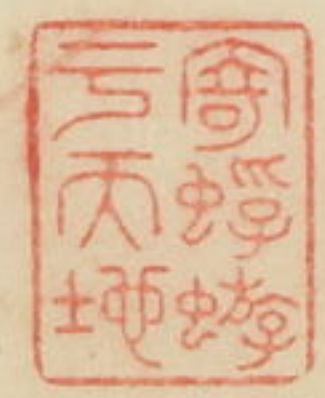 寄蜉蝣
于天地